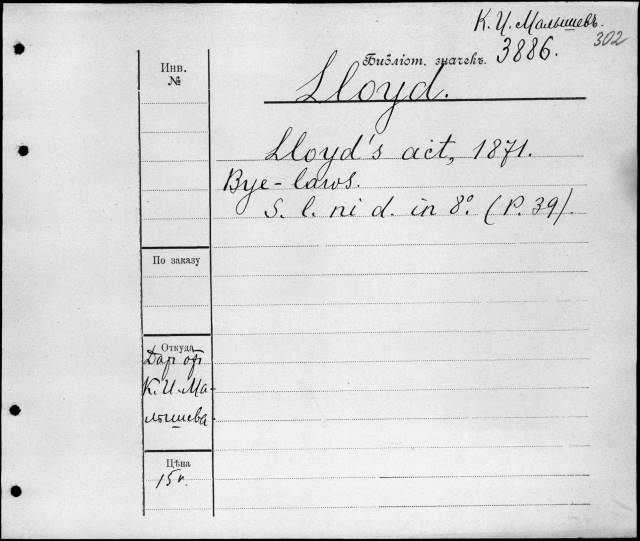 К. И. Малышевъ.
302
Библіот. значекъ. 3886.
Lloyd.
Инв.
№
Lloyd's act, 1871.
Bye-laws.
S. l. ni d. in 8º. (P. 39).
По заказу
Откуда
Дар от
К. И. Ма-
лышева.
Цѣна
15 к.